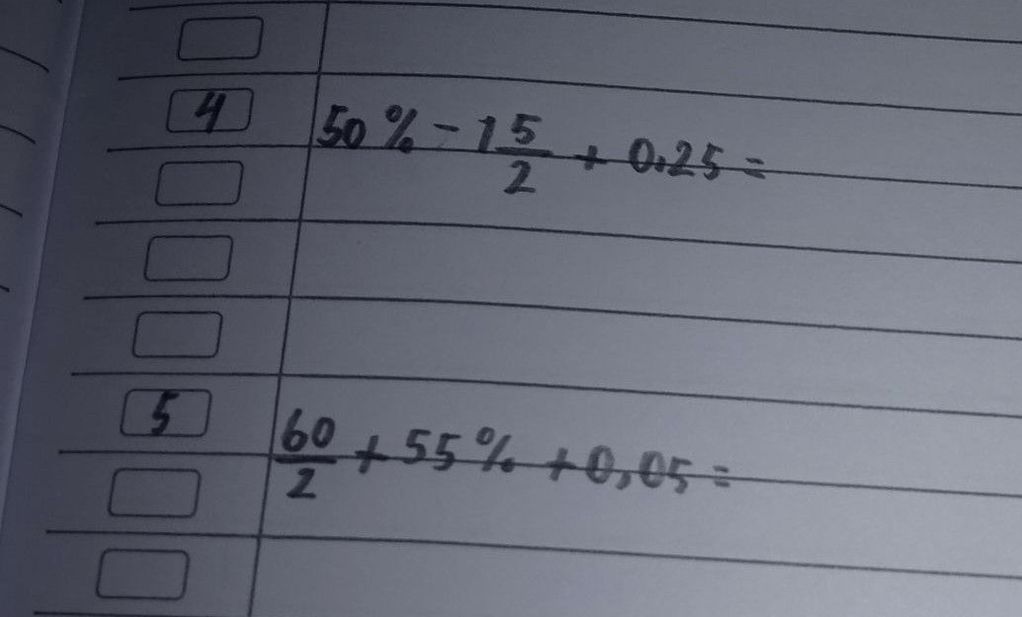 4 50% - 1 5/2 + 0.25 =
5 60/2 + 55% + 0,05 =